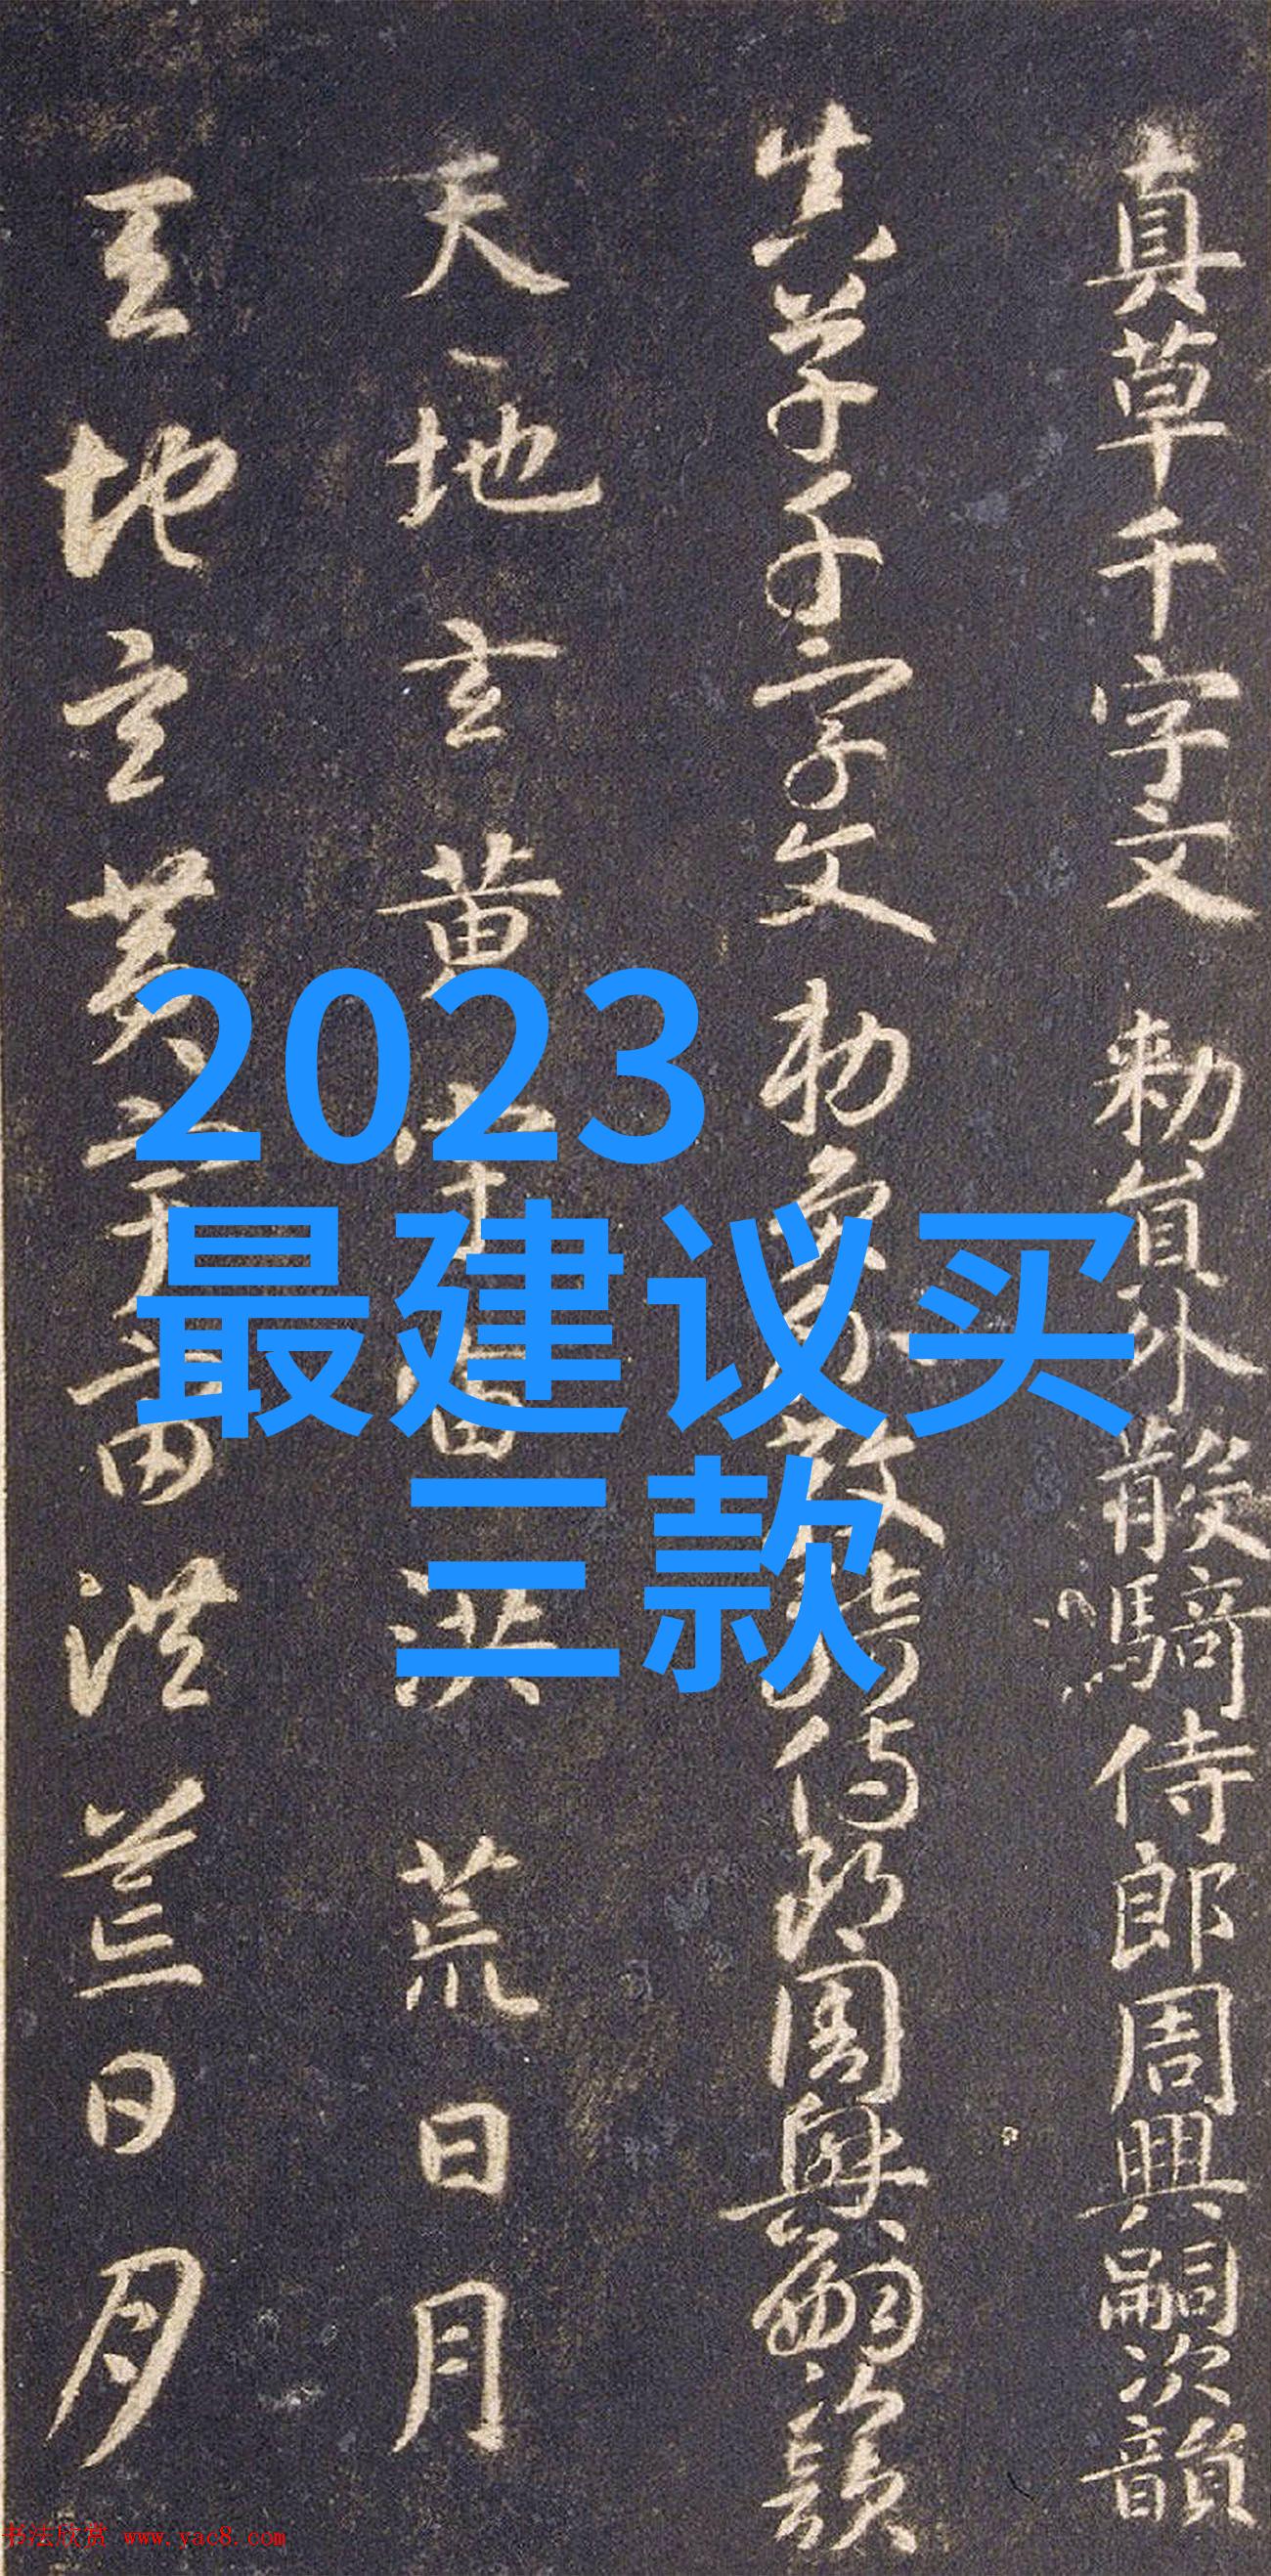 真草千字文 勅員外散騎侍郎周興嗣次韻
真草千字文 勅員外散騎侍郎周興嗣次韻
天地玄黄宇宙洪荒日月
天地玄黄宇宙洪荒日月
2023
最建议买
三款
书法欣赏 www.yac8.com